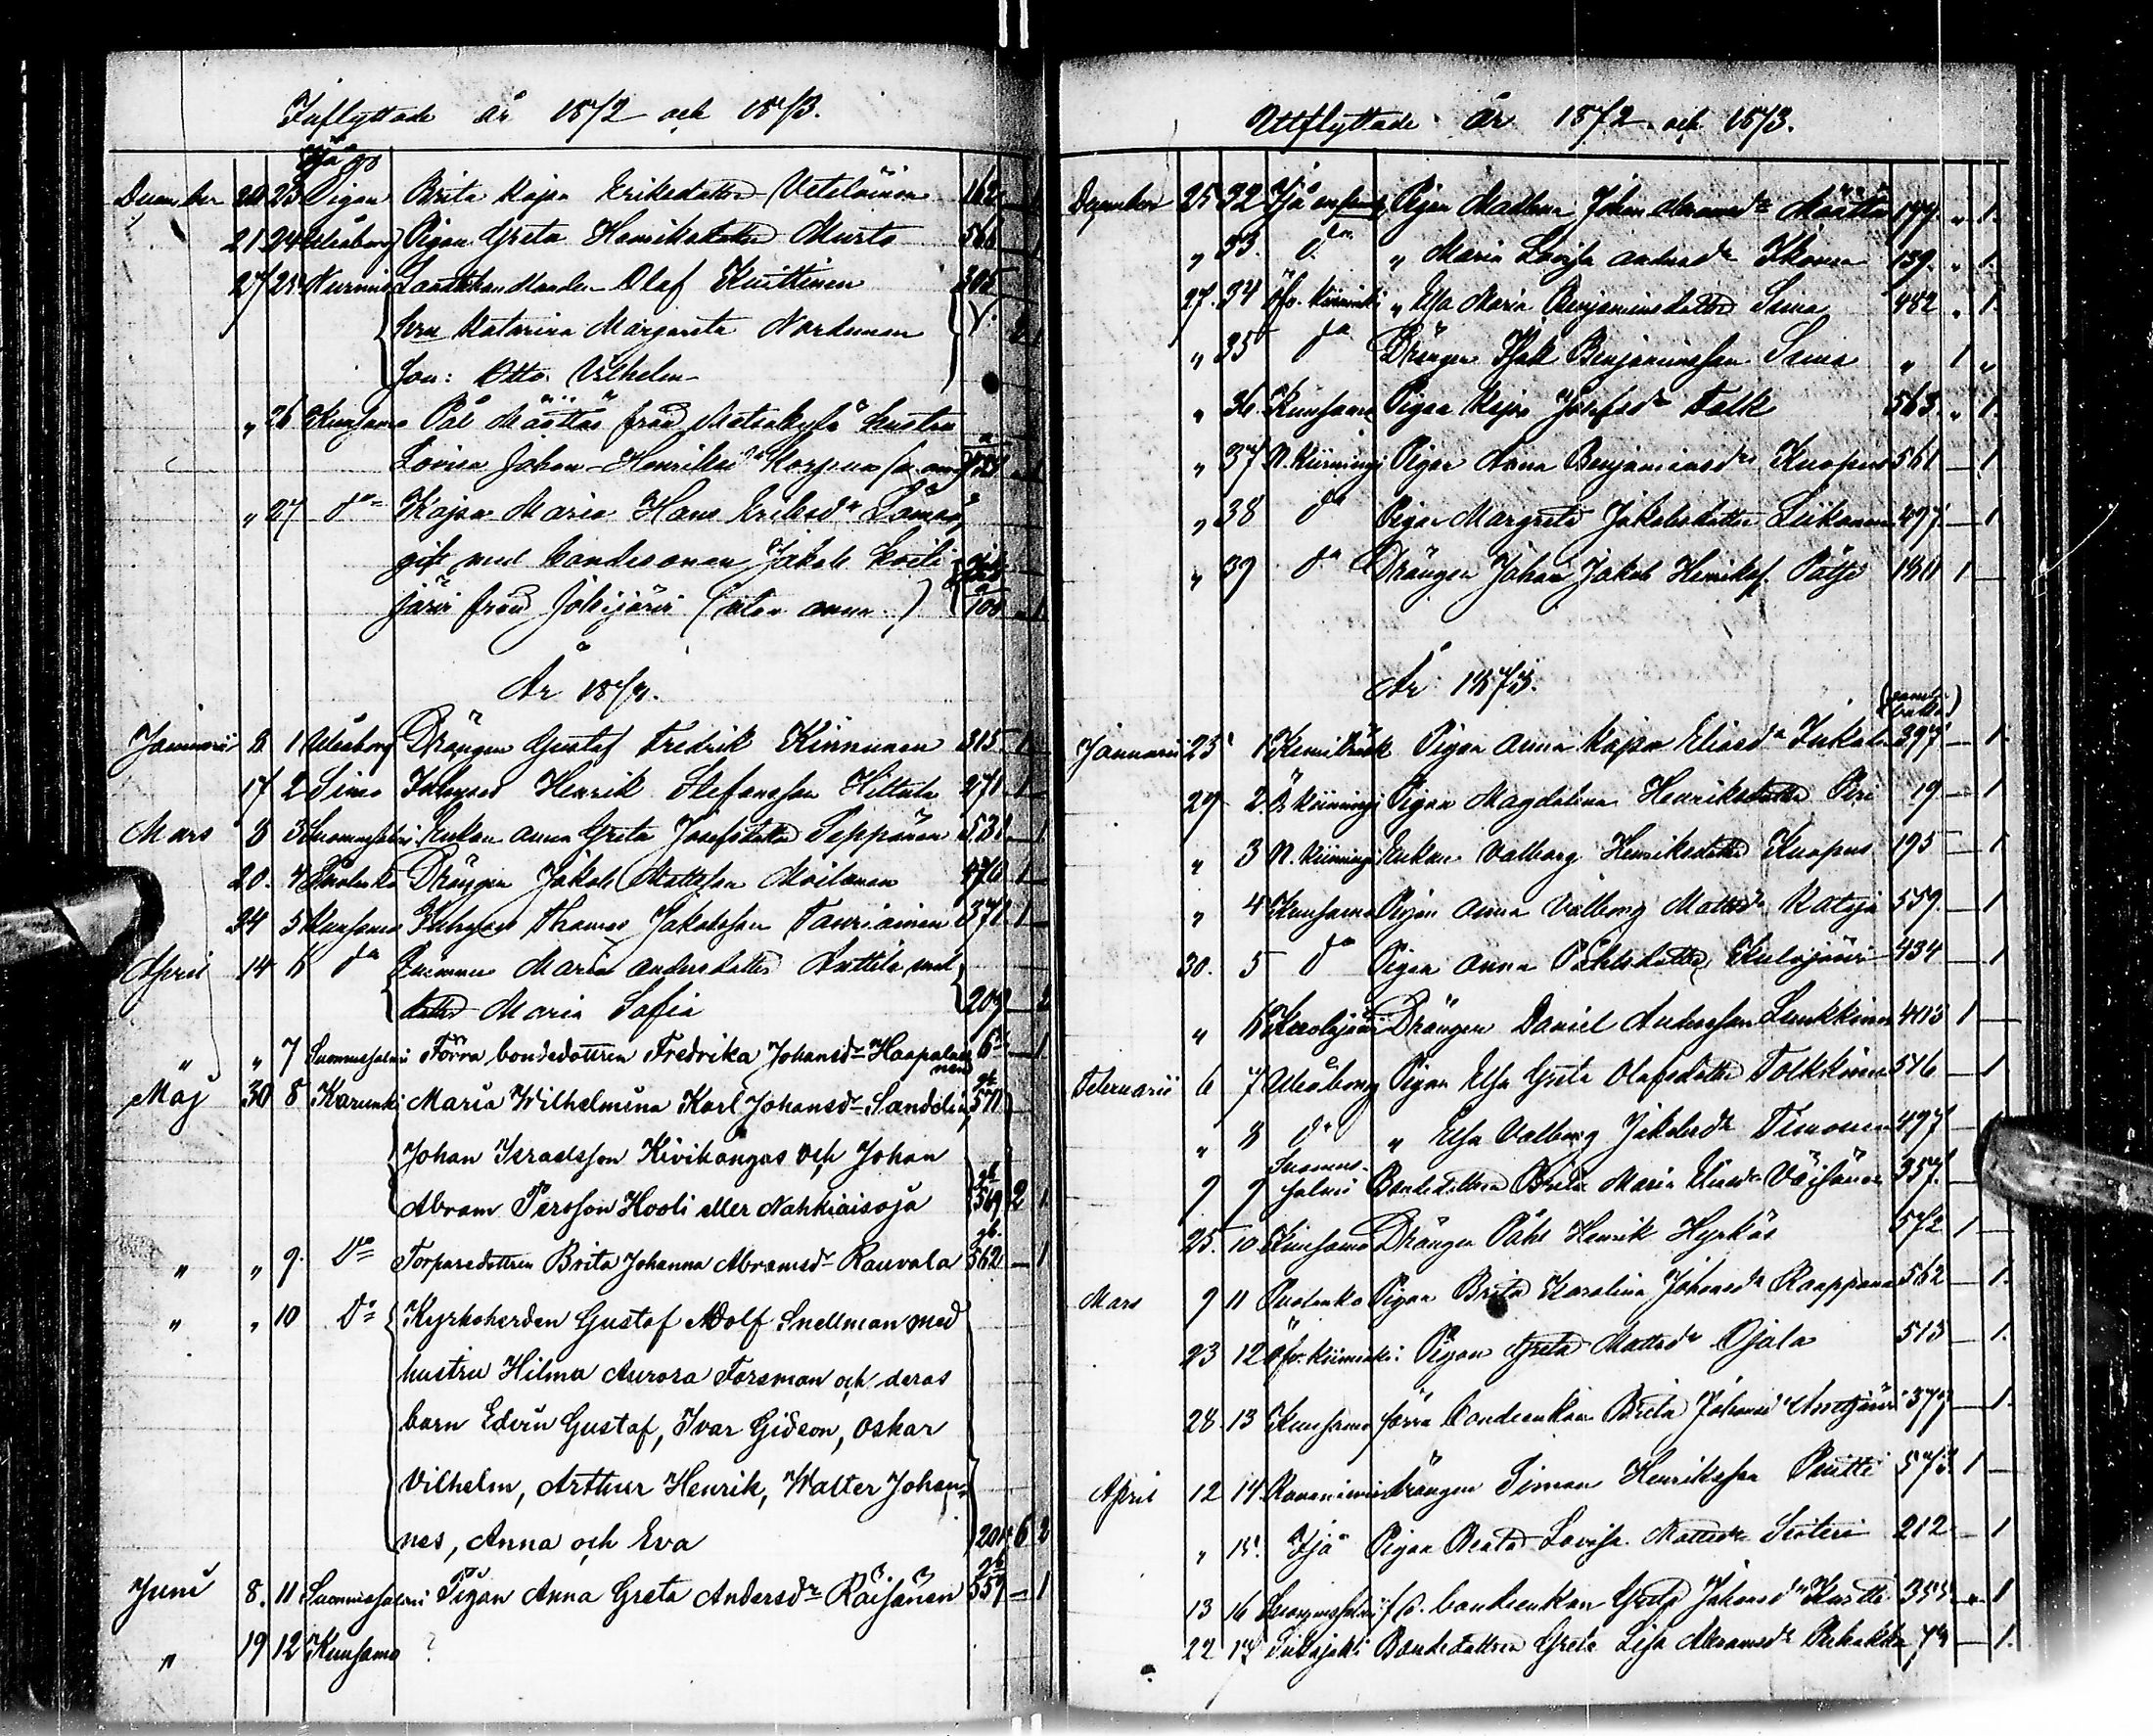 Inflyttade år 1872 och 1873.
Ijå
December 20 23 Pigan Brita Kajsa Eriksdotter Veteläinen 162 1
21 24 Uleåborg Pigan Greta Henriksdotter Murto 566 1
27 25 Nurmis Landthandlanden Olaf Kuittinen 305
hru Katarina Margareta Nordman
Son: Otto Vilhelm
" 26 Kuusamo Pål Määttäs från hustru
Lovisa Johan-Henriksdr Korpinen 1
" 27 do Kajsa Maria Hans Eriksdr Lämsä,
gift med bondesonen Jakob
järvi från Jokijärvi 1
År 1873.
Januarii 8 1 Uleåborg Drängen Gustaf Fredrik Kinnunen 315 1 —
17 2 Simo Inhyses Henrik Stefansson Hiltula 271 1 —
Mars 3 3 Suomussalmi Enkan Anna Greta Josefsdotter Seppänen 531 — 1
20. 4 Puolanko Drängen Jakob Mattsson Moilanen 470 1 —
24 5 Kuusamo Inhyses Thomas Jakobsson Tauriainen 371 1 —
April 14 6 do Maria Andersdotter Anttila med
dotter Maria Sofia 209 — 2
" " 7 Suomussalmi Förra bondedottren Fredrika Johansdr Haapalai
nen 6 — 1
Maj 30 8 Karunki Maria Wilhelmina Karl Johansdr Sandelin, 571
Johan Israelsson Kivikangas och Johan
Abram Persson Hooli eller Nahkiaisoja 569 2 1
" " 9. Do Torparedottren Brita Johanna Abramsdr Rauvala 562 — 1
" " 10 Do Kyrkoherden Gustaf Adolf Snellman med
hustru Hilma Aurora Forsman och deras
barn Edvin Gustaf, Ivar Gideon, Oskar
Vilhelm, Arthur Henrik, Walter Johan-
nes, Anna och Eva 201 6 2
Juni 8. 11 Suomussalmi Pigan Anna Greta Andersdr Räisänen 559 — 1
" 19 12 Kuusamo ?
Uttflyttade år 1872 och 1873.
December 25 32 Ijå Pigan Johan Abramsdr Määttä 177. " 1.
" 33. do " Maria Lovisa Andersdr Ikonen 139. " 1.
27. 34 Öfv. Kiiminki " Elsa Maria Benjaminsdotter Suua 452 " 1.
" 35 do Drängen Isak Benjaminsson Suua " 1 "
" 36. Kuusamo Pigan Kajsa Josefsdr Falk 563. " 1.
" 37 N. Kiimingi Pigan Anna Benjaminsdr Kuopus 561 — 1
" 38 do Pigan Margreta Jakobsdotter Liikanen 497 — 1
" 39 do Drängen Johan Jakob Henriksson Pätsi 1 —
År 1873.
Januarii 25 1 Kemiträsk Pigan Anna Kajsa Eliasdr Inkala 397 — 1.
29 2. Ö. Kiimingi Pigan Magdalena Henriksdotter Piri 19 — 1
" 3 N. Kiimingi Enkan Valborg Henriksdotter Kuopus 195 — 1
" 4 Kuusamo Pigan Anna Valborg Mattsdr Karjä 559. — 1
30. 5 do Pigan Anna Påhlsdotter 434 — 1
" 6 Kuolajärvi Drängen Daniel Andersson Lunkkinen 1 —
Februarii 6 7 Uleåborg Pigan Elsa Greta Olofsdotter Tolkkinen 516 — 1
" 8 do " Elsa Valborg Jakobsdr Timonen 497 —
9 9 Suomus-
salmi Bondedottren Brita Maria Eliasdr Väisänen 357.
25. 10 Kuusamo Drängen Påhl Henrik Hyrkäs 572 1 —
Mars 9 11 Puolanko Pigan Brita Karolina Johansdr Karppanen 562 — 1.
23 12 Öfv. Kiiminki: Pigan Greta Mattsdr Ojala 513 — 1.
28. 13 Kuusamo förra bondeenkan Brita Johansdr 379 — 1.
April 12 14. Rovaniemi Drängen Simon Henriksson Puitti 573. 1 —
" 15. Ijå Pigan Beata Lovisa Mattsdr 212 — 1
13 16 f.d. bondeenkan Greta Johansdr Kurtti 355 " 1
22 17 Siikajoki Bondedottren Greta Lisa Abramsdr — 1.